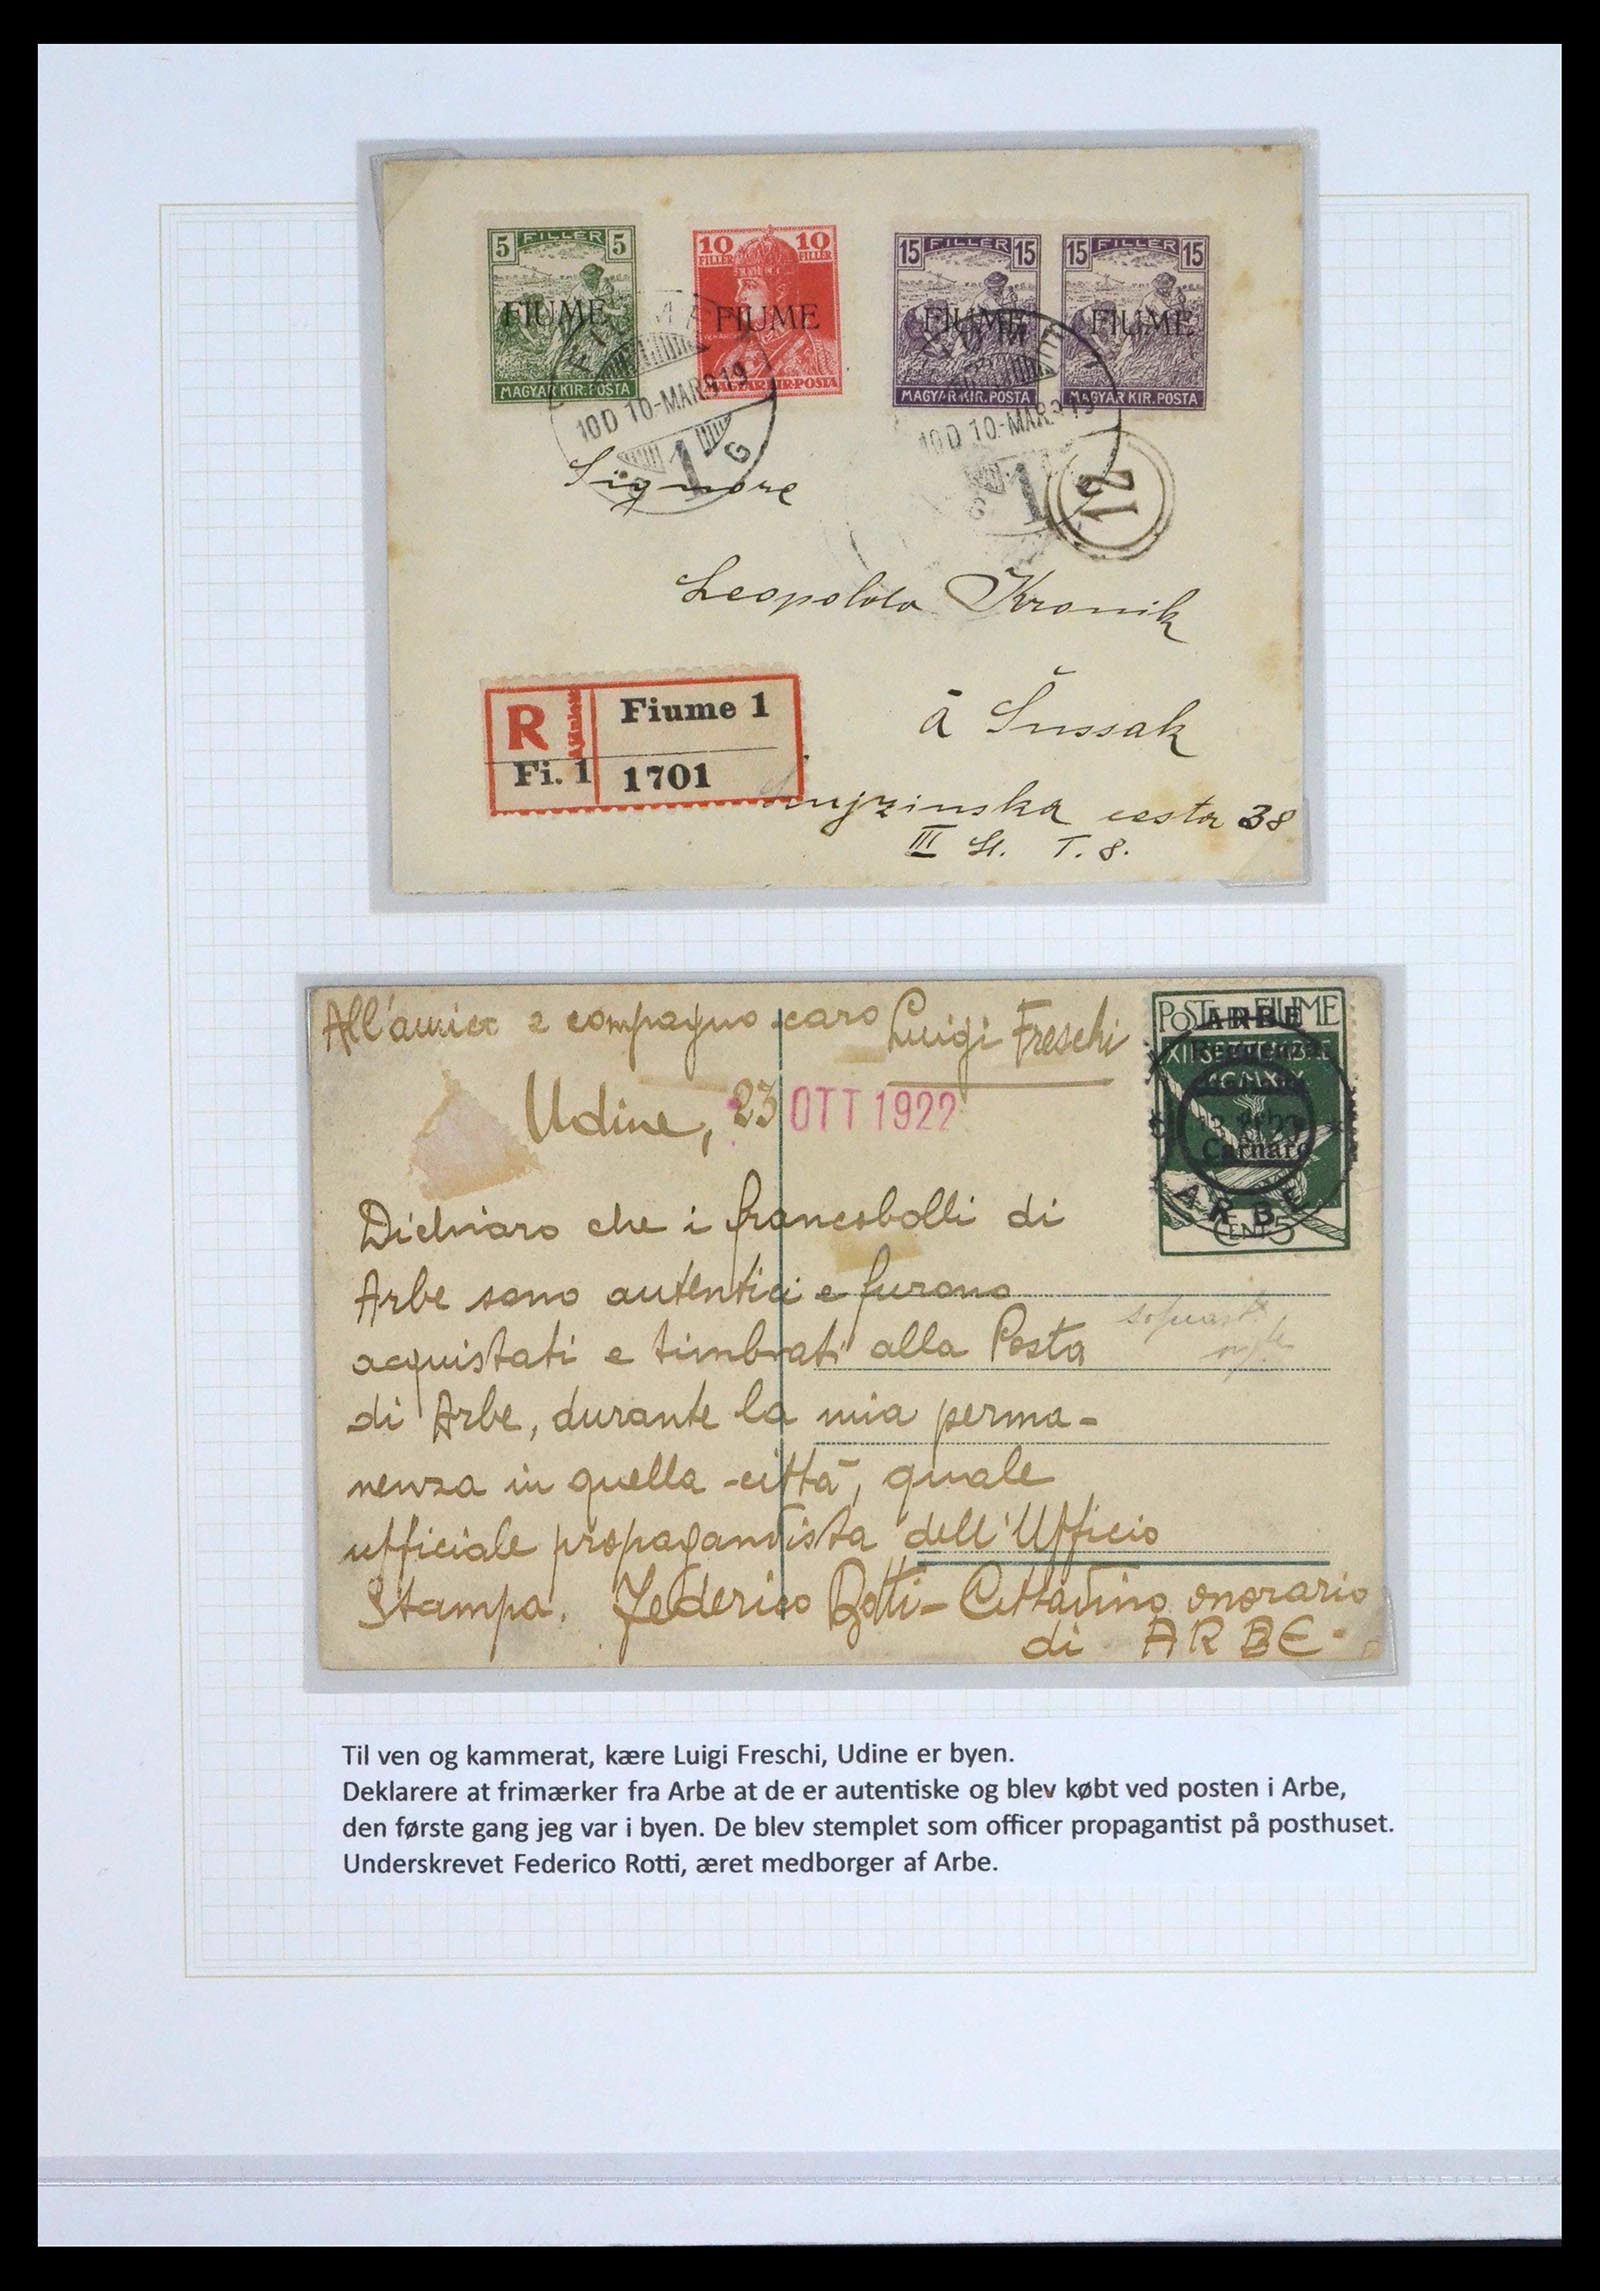 5 FILLER 5
FIUME
MAGYAR KIR. POSTA
10 10
FILLER FILLER
FIUME
MAGYAR KIR. POSTA
15 FILLER 15
FIUME
MAGYAR KIR. POSTA
15 FILLER 15
FIUME
MAGYAR KIR. POSTA
FIUME
10D 10-MAR 919
1 G
10D 10-MAR 919
G 1
12
Signore
Leopoldo Kronik
à Šussak
cesta 38
III St. T. 8.
R Ajánlott Fiume 1
Fi. 1 1701
All'amico e compagno caro Luigi Freschi
Udine, 23 OTT 1922
Dichiaro che i francobolli di
Arbe sono autentici e furono
acquistati e timbrati alla Posta
di Arbe, durante la mia perma-
nenza in quella città, quale
ufficiale propagandista dell'Ufficio
Stampa. Federico Botti - Cittadino onorario
di ARBE.
POSTA DI FIUME
ARBE
XII SETTEMBRE
Reggenza
MCMXIX
Carnaro
ARBE
CENT 5
Til ven og kammerat, kære Luigi Freschi, Udine er byen.
Deklarere at frimærker fra Arbe at de er autentiske og blev købt ved posten i Arbe,
den første gang jeg var i byen. De blev stemplet som officer propagantist på posthuset.
Underskrevet Federico Rotti, æret medborger af Arbe.